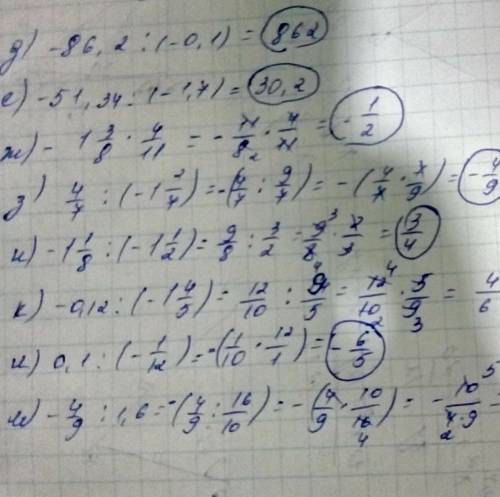 д) -86,2 : (-0,1) = 862
е) -51,34 : (-1,7) = 30,2
ж) - 1 3/8 · 4/11 = - 11/8 2 · 4/11 = - 1/2
з) 4/7 : (-1 2/7) = -(4/7 : 9/7) = -(4/7 · 7/9) = - 4/9
и) -1 1/8 : (-1 1/2) = 9/8 : 3/2 = 9 3/8 · 2/3 = 3/4
к) -0,12 : (-1 4/5) = 12/10 : 9/5 = 12 4/10 2 · 5/9 3 = 4/6
л) 0,1 : (- 1/12) = -(1/10 · 12/1) = - 6/5
м) - 4/9 : 1,6 = -(4/9 : 16/10) = -(4/9 · 10/16 4) = - 10 5/4 2 · 9